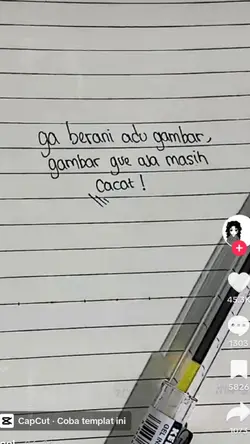 ga berani adu gambar,
gambar gue aja masih
cacat!
45,3K
1303
5826
CapCut · Coba templat ini